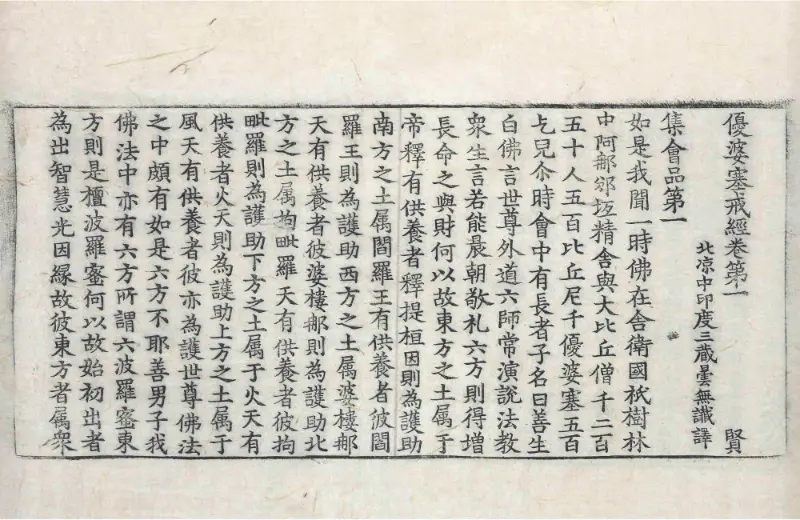 優婆塞戒經卷第一 賢
北涼中印度三藏曇無讖譯
集會品第一
如是我聞一時佛在舍衛國祇樹林
中阿那邠坻精舍與大比丘僧千二百
五十人五百比丘尼千優婆塞五百
乞兒尒時會中有長者子名曰善生
白佛言世尊外道六師常演說法教
衆生言若能晨朝敬礼六方則得增
長命之與財何以故東方之土属于
帝釋有供養者釋提桓因則為護助
南方之土属閻羅王有供養者彼閻
羅王則為護助西方之土属婆樓那
天有供養者彼婆樓那則為護助北
方之土属拘毗羅天有供養者彼拘
毗羅則為護助下方之土属于火天有
供養者火天則為護助上方之土属于
風天有供養者彼亦為護世尊佛法
之中頗有如是六方不耶善男子我
佛法中亦有六方所謂六波羅蜜東
方則是檀波羅蜜何以故始初出者
為出智慧光因緣故彼東方者属衆